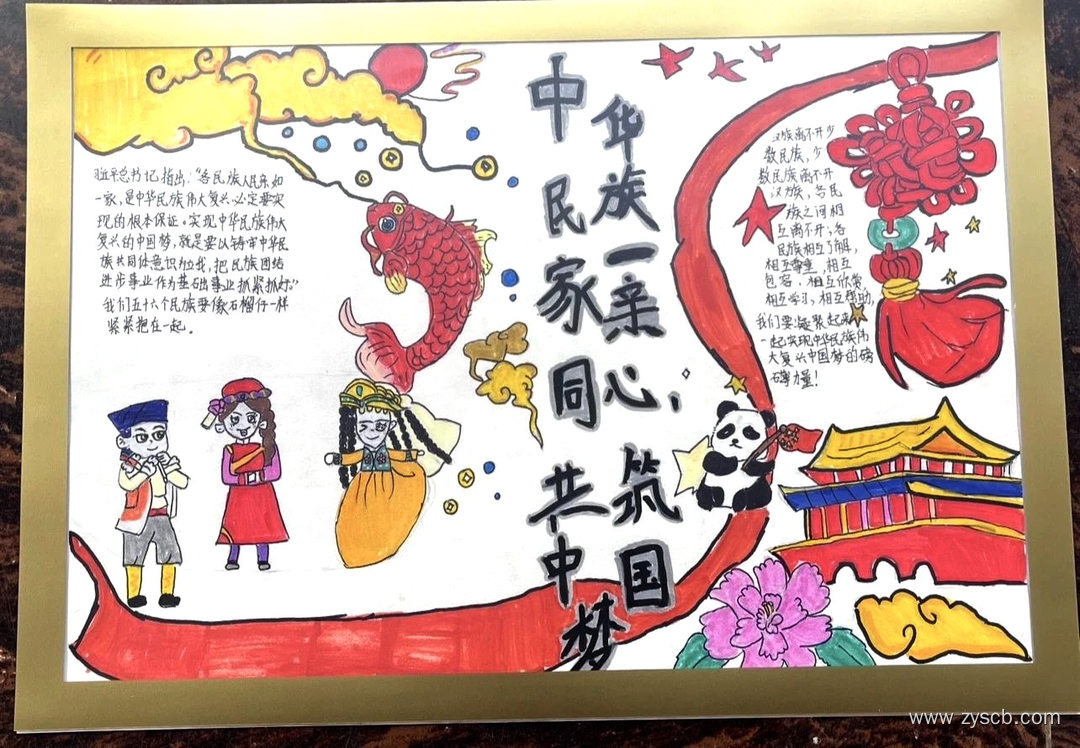 习近平总书记指出：“各民族人民亲如
一家，是中华民族伟大复兴必定要实
现的根本保证。实现中华民族伟大
复兴的中国梦，就是要以铸牢中华民
族共同体意识，把民族团结
进步事业作为基础事业抓紧抓好”
我们五十六个民族要像石榴仔一样
紧紧抱在一起。
中华民族一家亲
同心，共筑中国梦
汉族离不开少
数民族，少
数民族离不开
汉族，各民
族之间相
互离不开，各
民族相互了解，
相互尊重，相互
包容，相互欣赏，
相互学习，相互帮助，
我们要凝聚起来
一起实现中华民族伟
大复兴中国梦的磅
礴力量！
www.zyscb.com